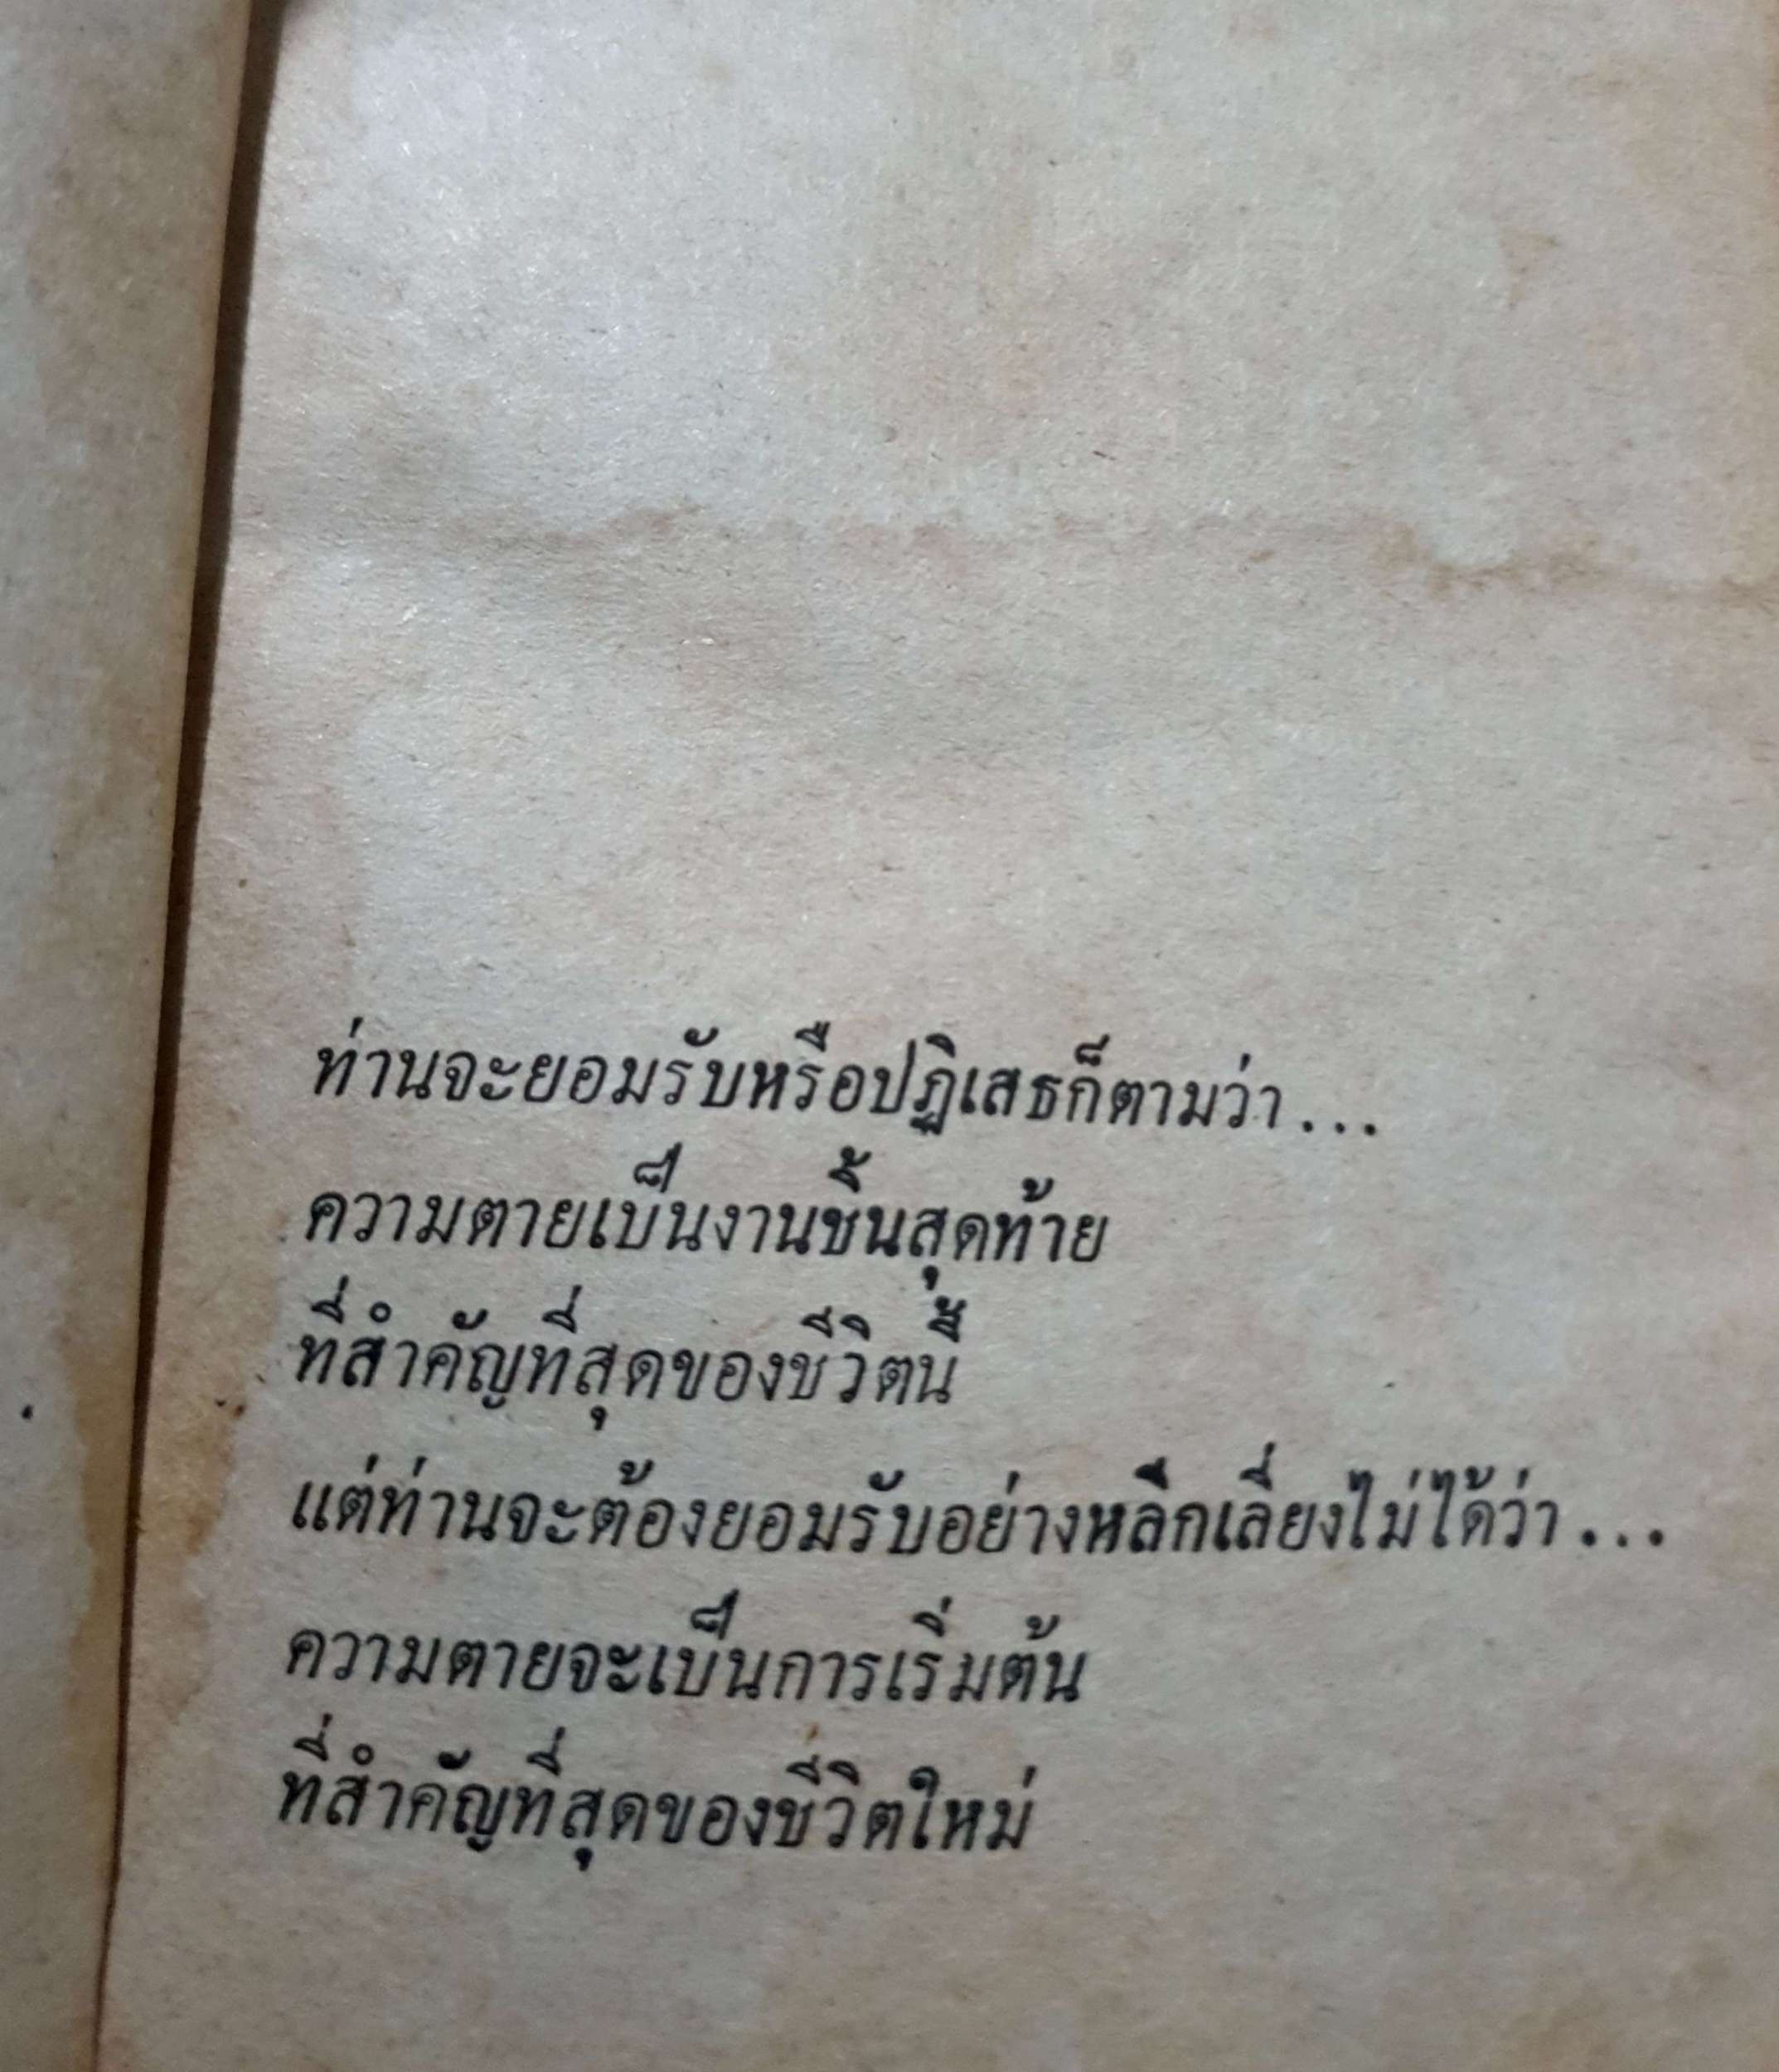 ท่านจะยอมรับหรือปฏิเสธก็ตามว่า...
ความตายเป็นงานชิ้นสุดท้าย
ที่สำคัญที่สุดของชีวิตนี้
แต่ท่านจะต้องยอมรับอย่างหลีกเลี่ยงไม่ได้ว่า...
ความตายจะเป็นการเริ่มต้น
ที่สำคัญที่สุดของชีวิตใหม่